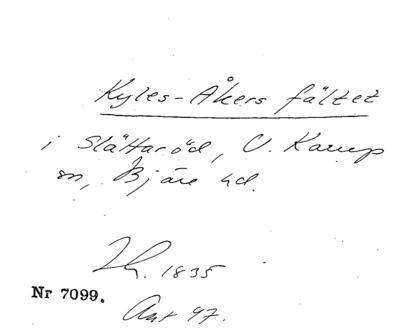 Kyles-Åkers fältet
i Slättaröd, V. Karup
sn, Bjäre hd.
Lh. 1835
Nr 7099.
Ant 47.